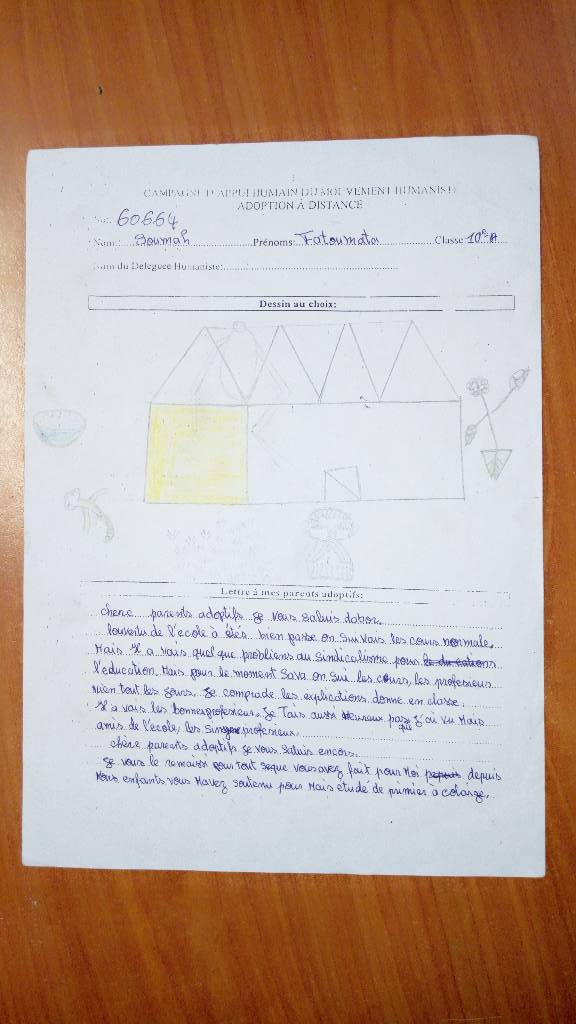 CAMPAGNE D'APPUI HUMAIN DU MOUVEMENT HUMANISTE
ADOPTION À DISTANCE
60664
Nom: Soumah Prénoms: Fatoumata Classe 10e A
Nom du Déléguée Humaniste:
Dessin au choix:
Lettre à mes parents adoptifs:
chere parents adoptifs Je vous saluis dation
louvertu de l'ecole à étés bien passe on Suivais les cours normale.
Mais Il a vais quel que probliems au Sindicalisme pour
l'education, Mais pour le moment Sava on Sui les cours, les profeseurs
vien tout les Jours. Je comprade les explications donne en classe.
Il a vais les bonner profeseur. Je Tais aussi heureux pas que J'ai vu Mais
amis de l'école, les professeur.
chère parents adoptifs Je vous Saluis encors.
Je vous le remercier pour tout Seque vous avez fait pour Moi depuis
enfants vous Mavez Soutenu pour Mais etudé de primier a colarge.